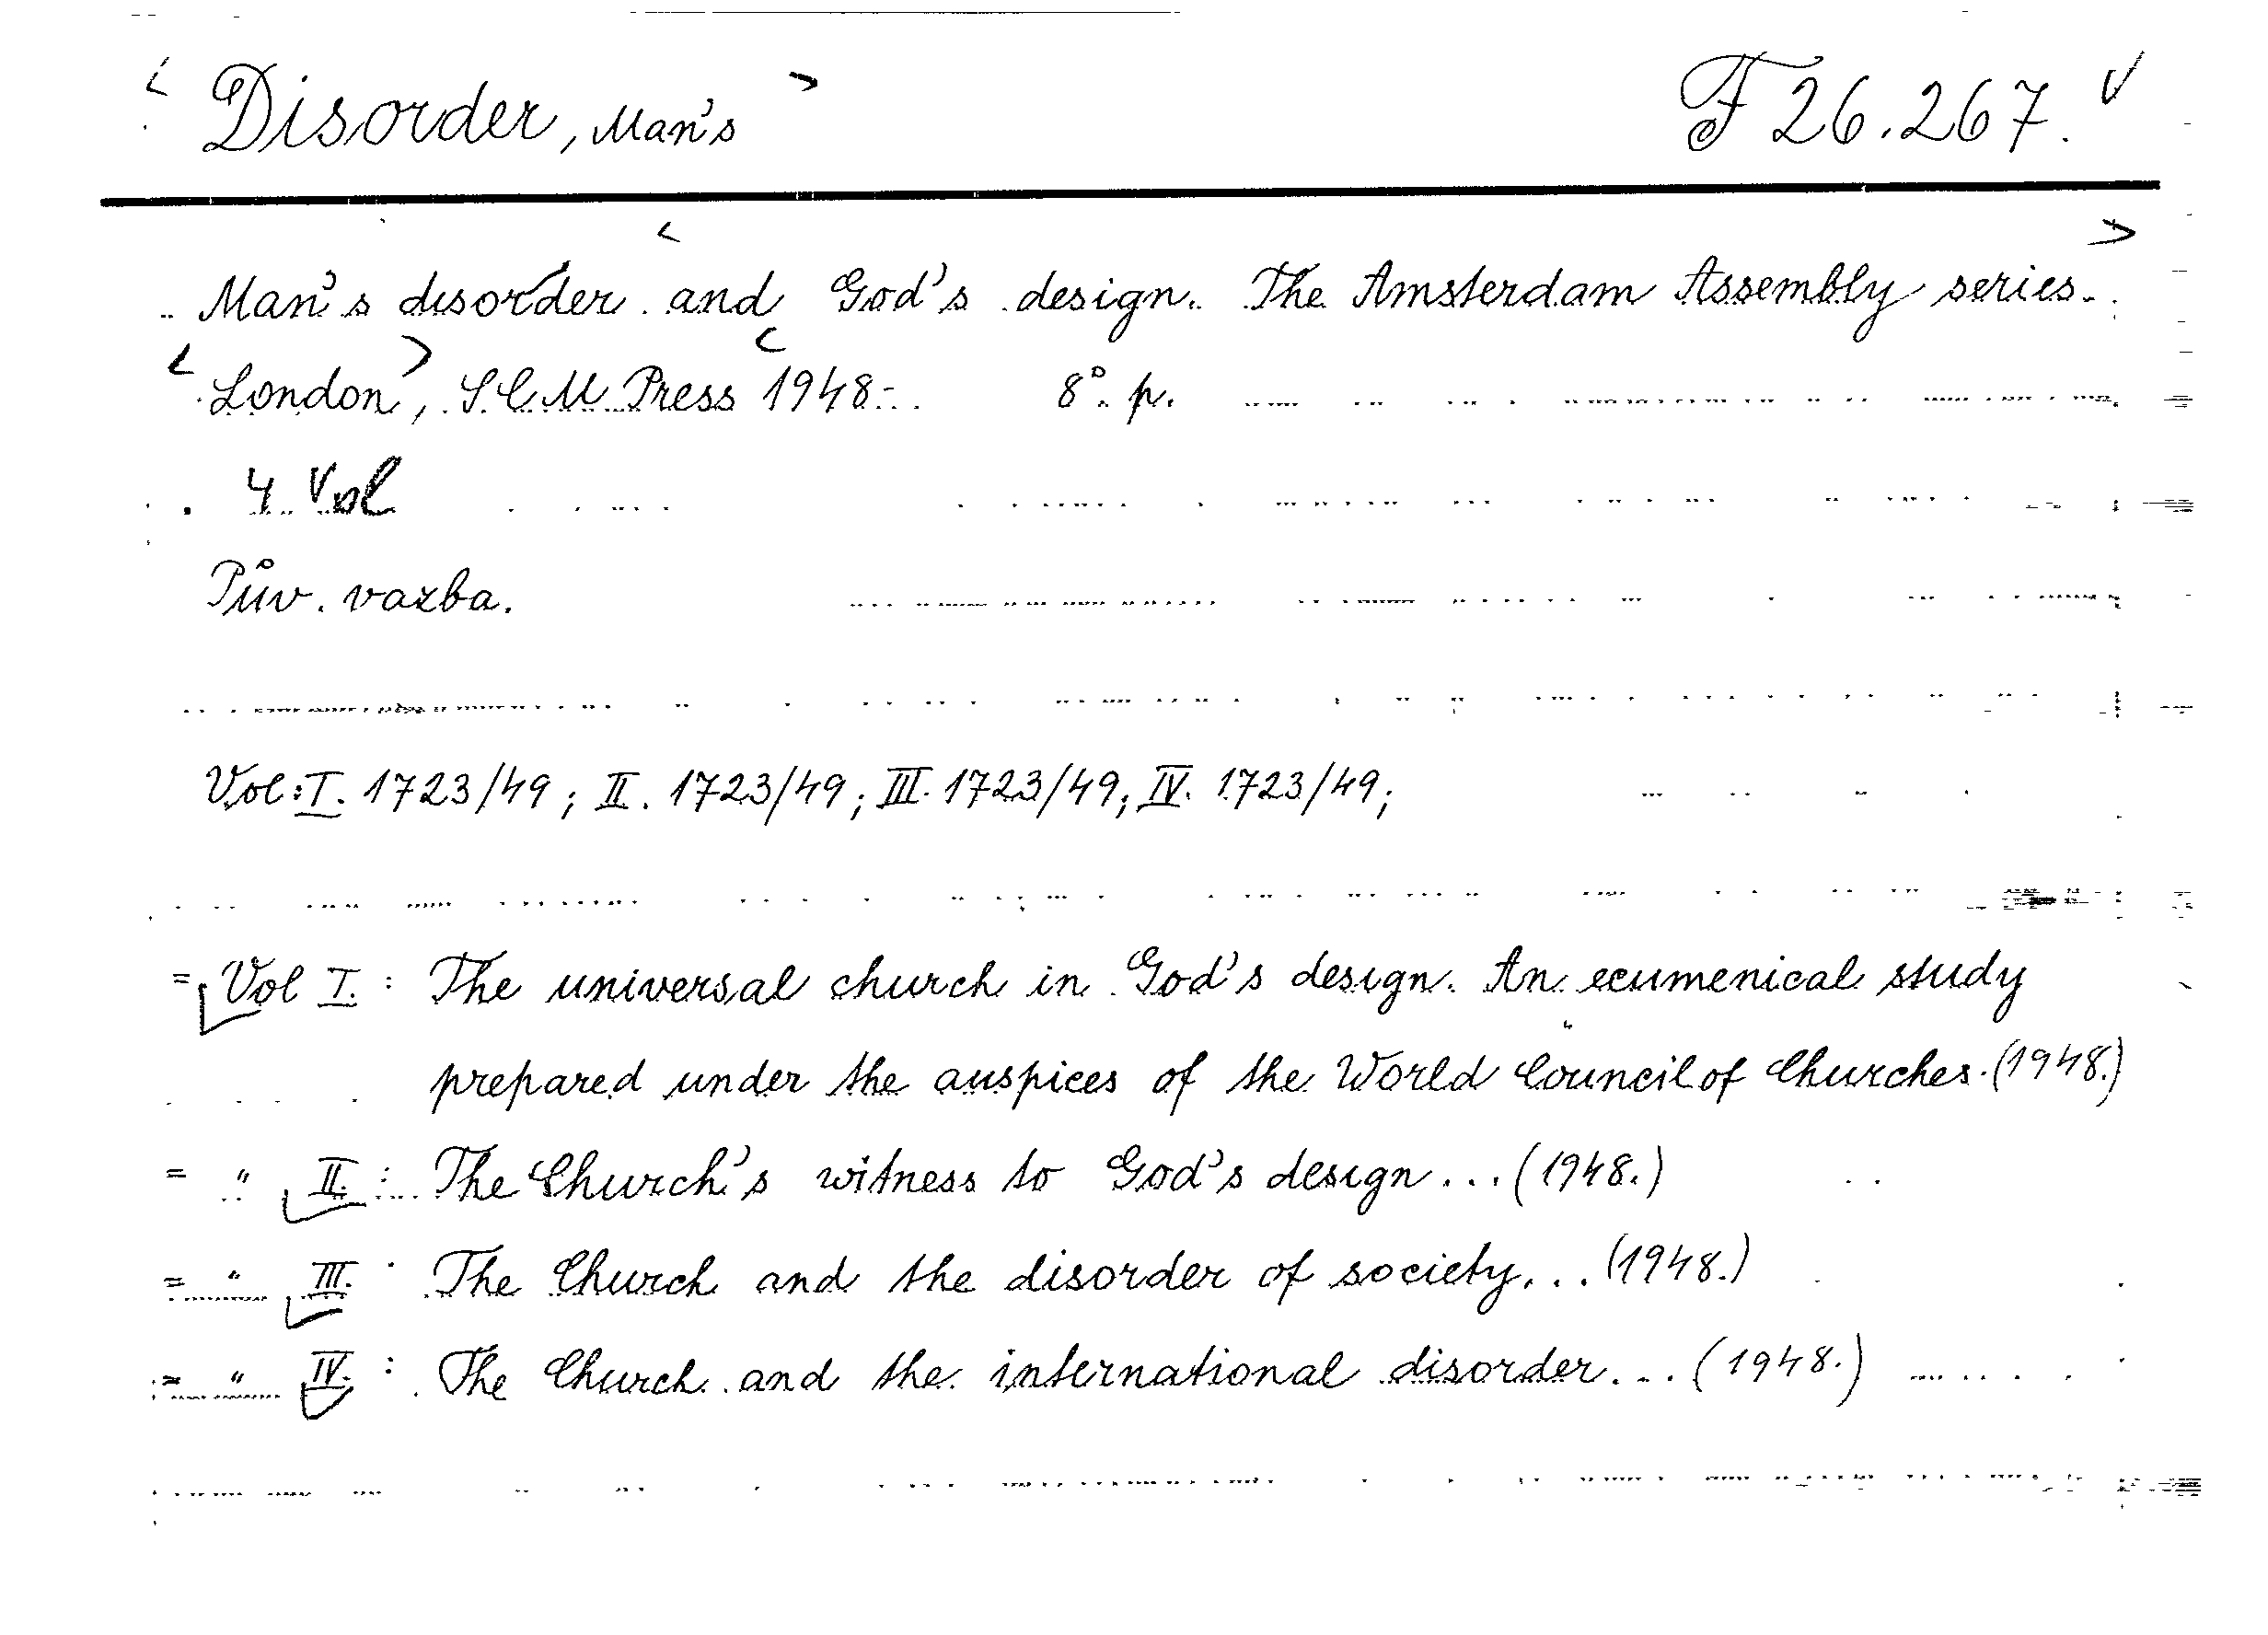 < Disorder, Man's > F 26.267. √
Man's disorder < and God's design. The Amsterdam Assembly series. >
< London >, S.C.M Press < 1948-. 8° p.
4. Vol
Pův. vazba.
Vol: I. 1723/49; II. 1723/49; III. 1723/49; IV. 1723/49;
= Vol I. : The universal church in God's design. An ecumenical study
prepared under the auspices of the World Council of Churches. (1948.)
= " II. : The Church's witness to God's design... (1948.)
= " III. : The Church and the disorder of society... (1948.)
= " IV. : The Church and the international disorder... (1948.)